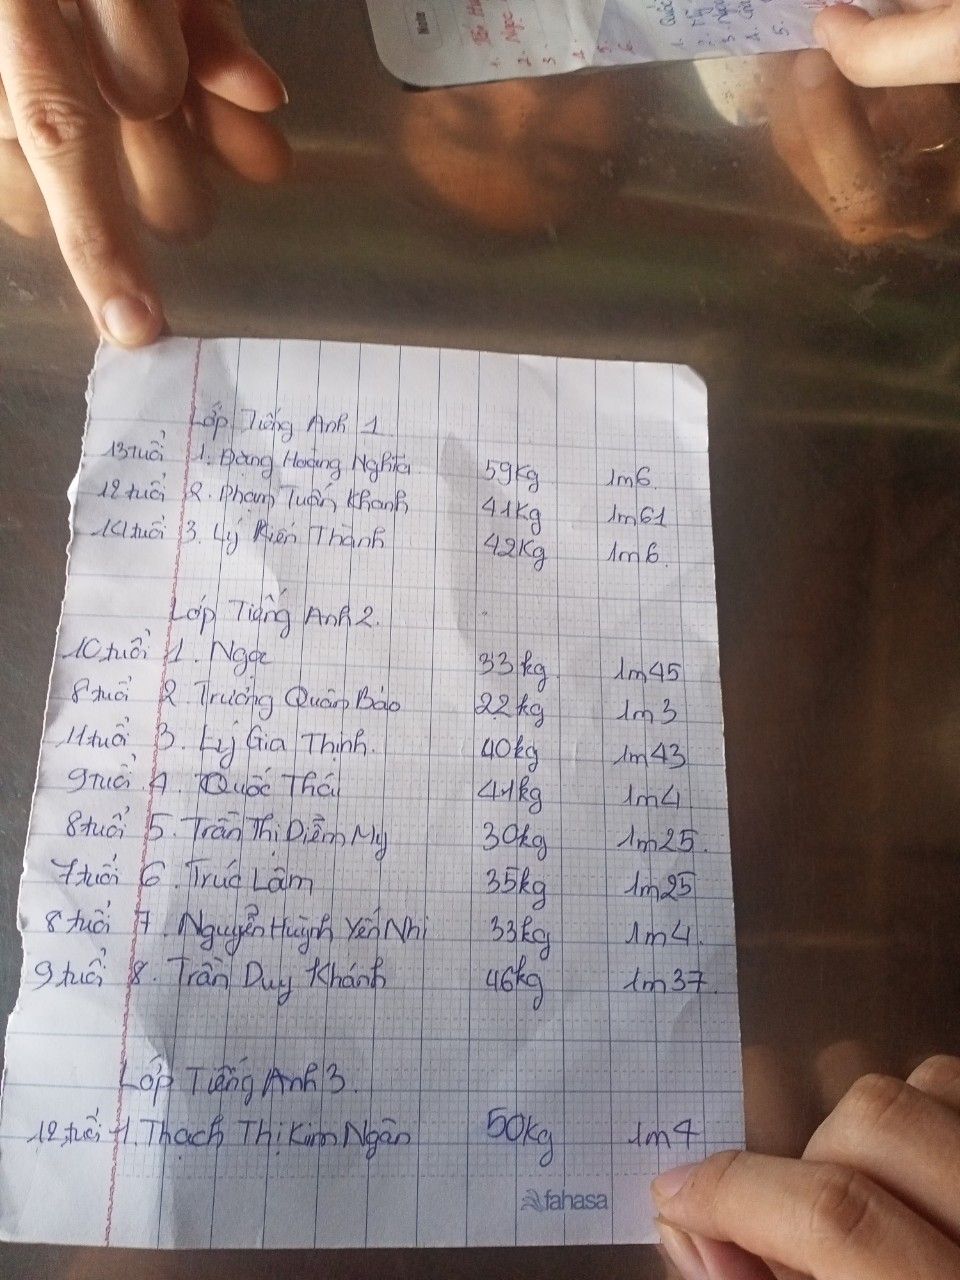 Note
1.
2. Ngọc
3
4.
5.
6
1.
2.
3.
4.
5.
Lớp Tiếng Anh 1
13 tuổi 1. Đặng Hoàng Nghĩa 59kg 1m6.
12 tuổi 2. Phạm Tuấn Khanh 41kg 1m61
14 tuổi 3. Lý Kiến Thành 42kg 1m6.
Lớp Tiếng Anh 2.
10 tuổi 1. Ngọc 33kg 1m45
8 tuổi 2. Trương Quân Bảo 22kg 1m3
11 tuổi 3. Lý Gia Thịnh. 40kg 1m43
9 tuổi 4. Quốc Thái 41kg 1m4
8 tuổi 5. Trần Thị Diễm My 30kg 1m25.
7 tuổi 6. Trúc Lâm 35kg 1m25
8 tuổi 7. Nguyễn Huỳnh Yến Nhi 33kg 1m4.
9 tuổi 8. Trần Duy Khánh 46kg 1m37.
Lớp Tiếng Anh 3.
12 tuổi 1. Thạch Thị Kim Ngân 50kg 1m47
fahasa